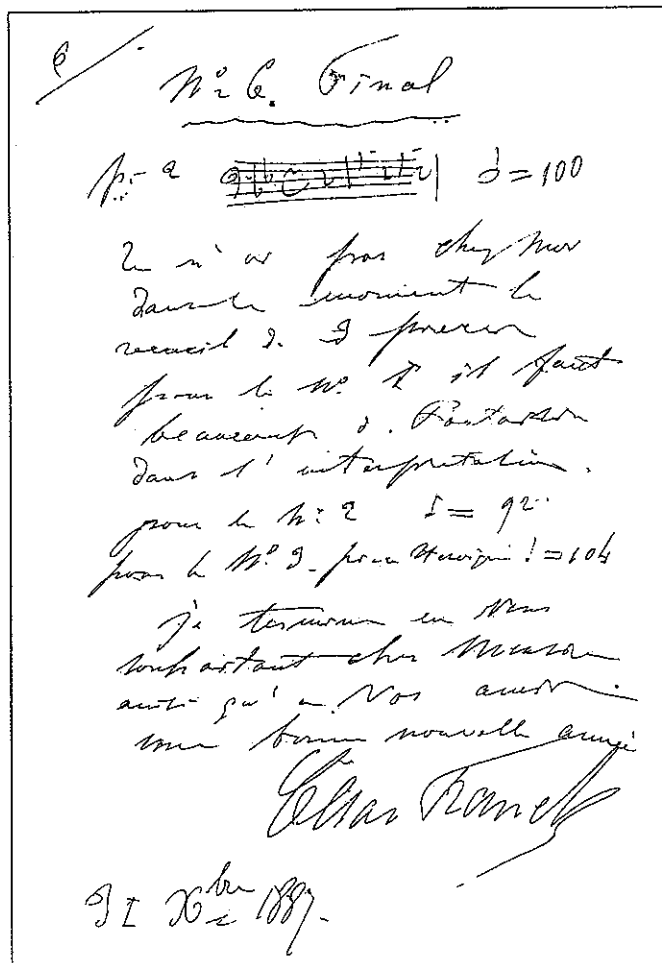 6/.
No 6. Final
p. 2 ♩=100
Je n'ai pas chez moi
dans ce moment le
recueil de 3 pièces
pour le No. I il faut
beaucoup de Fantaisie
dans l'interprétation.
pour le No 2 ♩= 92
pour le No. 3. pièce Héroïque ♩=104
je termine en Vous
souhaitant cher Monsieur
ainsi qu'a Vos amis
une bonne nouvelle année
César Franck
31 Xbre 1887.